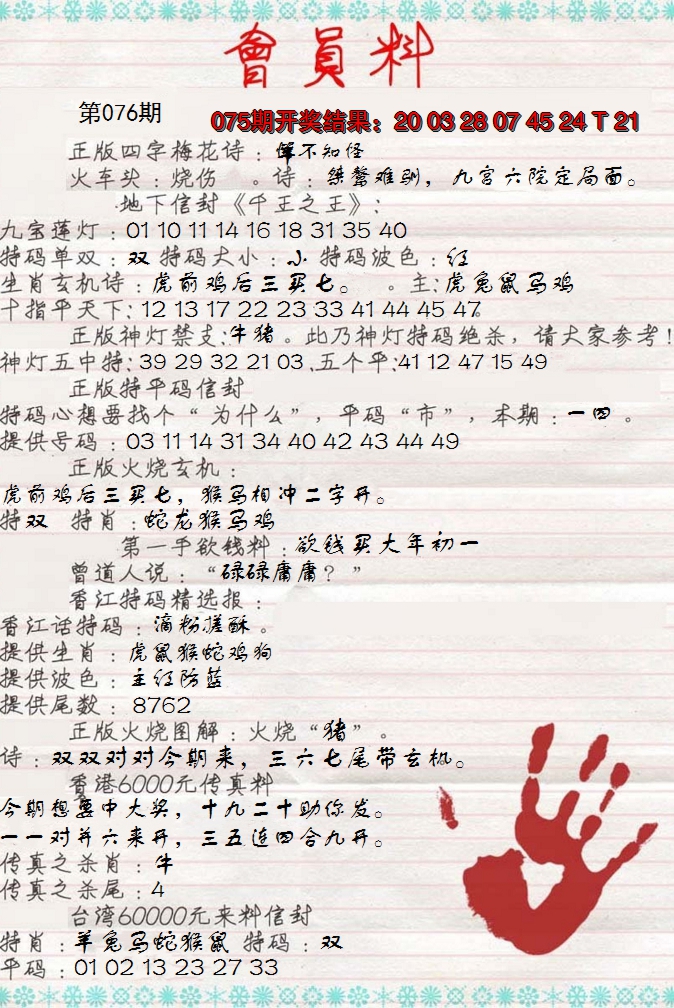 會員料
第076期
075期开奖结果：20 03 28 07 45 24 T 21
正版四字梅花诗：惮不知怪
火车头：烧伤 。诗：桀骜难驯，九宫六院定局面。
地下信封《千王之王》：
九宝莲灯：01 10 11 14 16 18 31 35 40
特码单双：双 特码大小：小 特码波色：红
生肖玄机诗：虎前鸡后三买七。 。主：虎兔鼠马鸡
十指平天下：12 13 17 22 23 33 41 44 45 47.
正版神灯禁支：牛猪。此乃神灯特码绝杀，请大家参考！
神灯五中特：39 29 32 21 03 .五个平：41 12 47 15 49
正版特平码信封
特码心想要找个“为什么”，平码“市”，本期：一四 。
提供号码：03 11 14 31 34 40 42 43 44 49
正版火烧玄机：
虎前鸡后三买七，猴马相冲二字开。
特双 特肖：蛇龙猴马鸡
第一手欲钱料：欲钱买大年初一
曾道人说：“碌碌庸庸？”
香江特码精选报：
香江话特码：滴粉搓酥。
提供生肖：虎鼠猴蛇鸡狗
提供波色：主红防蓝
提供尾数：8762
正版火烧图解：火烧“猪”。
诗：双双对对今期来，三六七尾带玄机。
香港6000元传真料
今期想要中大奖，十九二十助你发。
一一对并六来开，三五连四合九开。
传真之杀肖：牛
传真之杀尾：4
台湾60000元来料信封
特肖：羊兔马蛇猴鼠 特码：双
平码：01 02 13 23 27 33